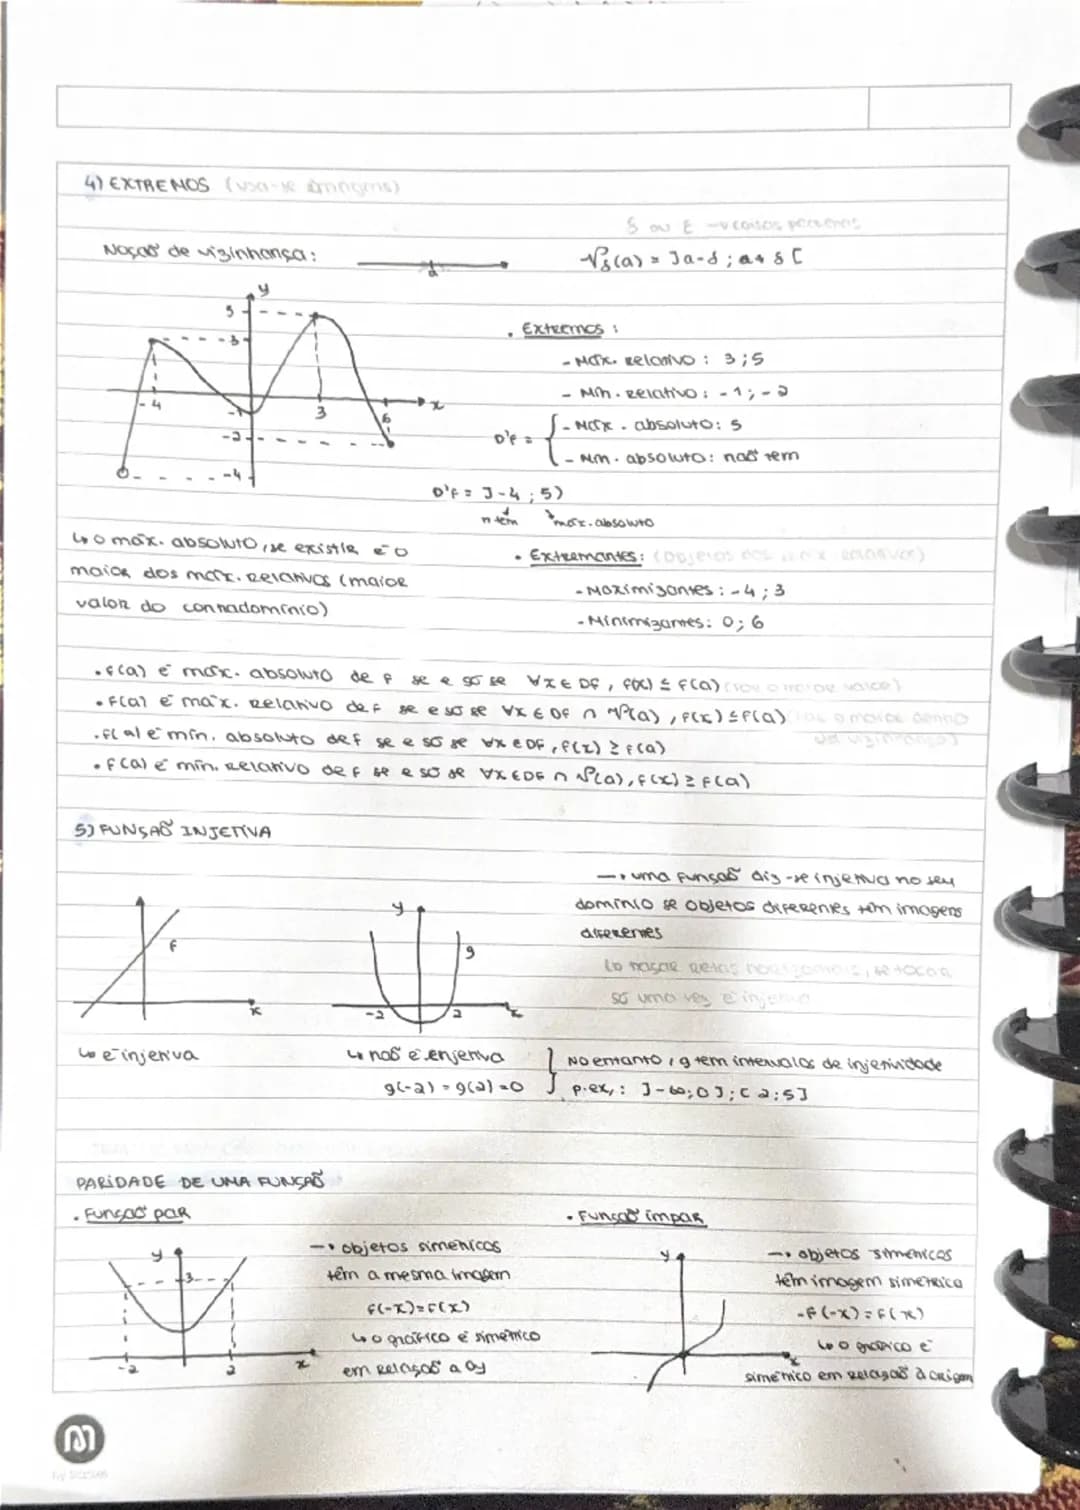 4) EXTREMOS (usa-se
δ ou ε → coisas pequenas
Noção de vizinhança:
a
Vδ(a) = ]a-δ; a+δ[
y
5
3
-4
-1
3
6
x
-2
-4
. Extremos:
- Máx. relativo: 3;5
- Mín. relativo: -1;-2
D'f = { - Máx. absoluto: 5
- Mín. absoluto: não tem
D'f = ]-4;5]
n tem máx. absoluto
↳ o máx. absoluto, se existir é o
maior dos máx. relativos (maior
valor do contradomínio)
• Extremantes: (objetos dos
- Maximizantes: -4;3
- Minimizantes: 0;6
• f(a) é máx. absoluto de f se e só se ∀x ∈ Df, f(x) ≤ f(a)
• f(a) é máx. relativo de f se e só se ∀x ∈ Df ∩ V(a), f(x) ≤ f(a)
• f(a) é mín. absoluto de f se e só se ∀x ∈ Df, f(x) ≥ f(a)
• f(a) é mín. relativo de f se e só se ∀x ∈ Df ∩ V(a), f(x) ≥ f(a)
5) FUNÇÃO INJETIVA
→ uma função diz-se injetiva no seu
domínio se objetos diferentes têm imagens
diferentes
↳ traçar retas horizontais, se tocar
só uma vez é injetiva
f
x
y
g
-2
2
x
↳ é injetiva
↳ não é enjetiva
g(-2) = g(2) = 0
} No entanto, g tem intervalos de injetividade
p.ex.: ]-∞;0]; [2;5]
PARIDADE DE UMA FUNÇÃO
. Função par
y
3
-2
2
x
→ objetos simétricos
têm a mesma imagem
f(-x)=f(x)
↳ o gráfico é simétrico
em relação a Oy
• Função ímpar
y
x
→ objetos simétricos
têm imagem simétrica
-f(-x)=f(x)
↳ o gráfico é
simétrico em relação à origem